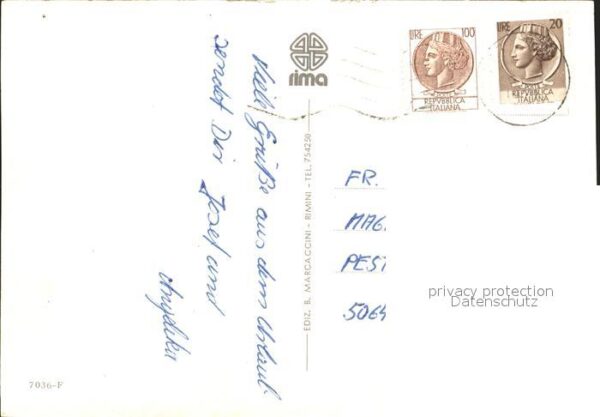 Viele Grüße aus dem Urlaub
sendet Dir Josef und
rima
EDIZ. B. MARCACCINI - RIMINI - TEL. 754250
7036-F
LIRE 100
REPVBBLICA
ITALIANA
LIRE 20
REPVBBLICA
ITALIANA
FR.
MAG.
PESI
5064
privacy protection
Datenschutz